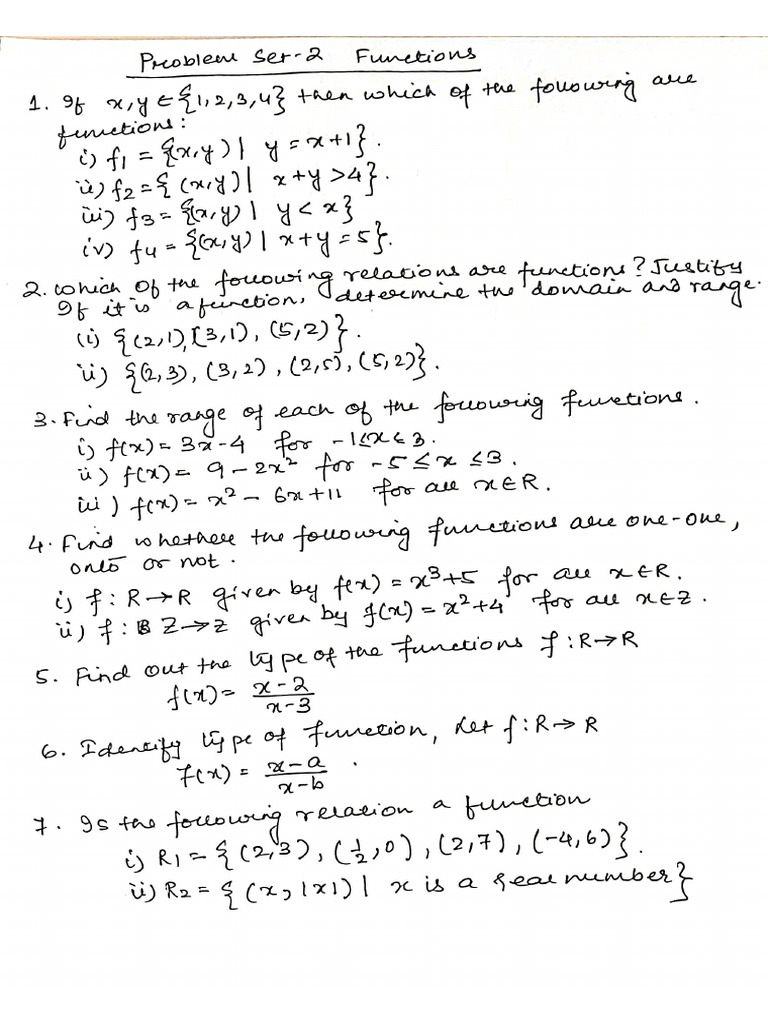 Problem Set-2 Functions
1. If x,y ∈ {1,2,3,4} then which of the following are
functions:
i) f1 = {(x,y) | y = x+1}.
ii) f2 = {(x,y) | x+y >4}.
iii) f3 = {(x,y) | y < x}
iv) f4 = {(x,y) | x+y = 5}.
2. Which of the following relations are functions? Justify
If it is a function, determine the domain and range.
(i) {(2,1),(3,1), (5,2)}.
ii) {(2,3), (3,2), (2,5), (5,2)}.
3. Find the range of each of the following functions.
i) f(x) = 3x-4 for -1≤x≤3.
ii) f(x) = 9-2x² for -5≤x≤3.
iii) f(x) = x² - 6x+11 for all x∈R.
4. Find whether the following functions are one-one,
onto or not.
i) f: R→R given by f(x) = x³+5 for all x∈R.
ii) f: Z→Z given by f(x) = x²+4 for all x∈Z.
5. Find out the type of the functions f: R→R
f(x) = x-2/x-3
6. Identify type of function, let f: R→R
f(x) = x-a/x-b .
7. Is the following relation a function
i) R1 = {(2,3), (1/2,0), (2,7), (-4,6)}.
ii) R2 = {(x, |x|) | x is a real number}